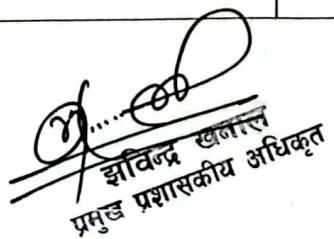 झविन्द्र खनाल
प्रमुख प्रशासकीय अधिकृत